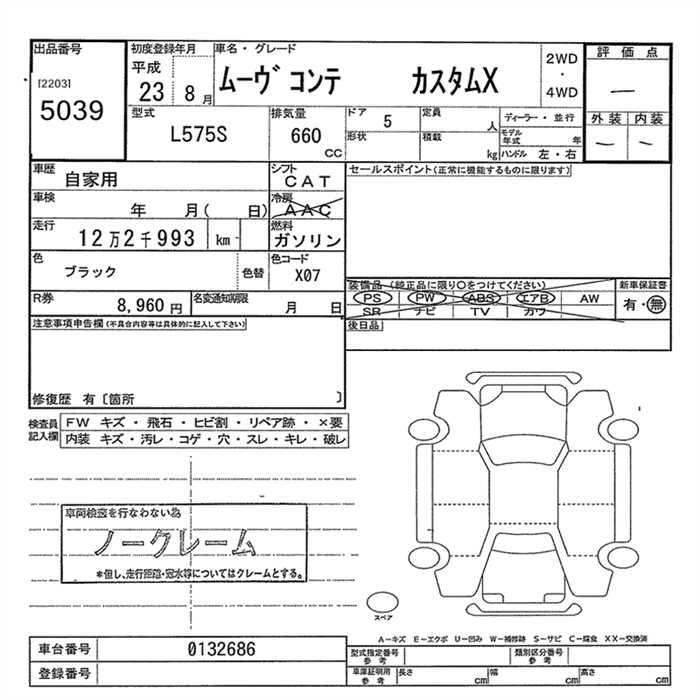 出品番号 初度登録年月 車名・グレード 2WD ・ 4WD 評価点
[2203]
5039
平成 23年 8月 ムーヴコンテ カスタムX —
外装 内装
— —
型式 排気量 ドア 5 定員 人 ディーラー・並行
L575S 660 CC 形状 積載 kg モデル年式 年
ハンドル 左・右
車歴 自家用 シフト CAT セールスポイント(正常に機能するものに限ります)
車検 年 月( 日) 冷房 AAC
走行 12万2千993 km 燃料 ガソリン
色 ブラック 色替 色コード X07
装備品(純正品に限り○をつけてください) 新車保証書
PS PW ABS エアB AW 有・無
SR ナビ TV カワ
R券 8,960円 名変通知期限 月 日
後日品
注意事項申告欄(不具合内容等は具体的に記入して下さい)
修復歴 有〔箇所 〕
検査員記入欄 FW キズ・飛石・ヒビ割・リペア跡・×要
内装 キズ・汚レ・コゲ・穴・スレ・キレ・破レ
車両検査を行なわない為
ノークレーム
*但し、走行距離・冠水等についてはクレームとする。
スペア
A−キズ E−エクボ U−凹み W−補修跡 S−サビ C−腐食 XX−交換済
車台番号 0132686
型式指定番号 参考 類別区分番号 参考
登録番号
車庫証明用 参考 長さ cm 幅 cm 高さ cm